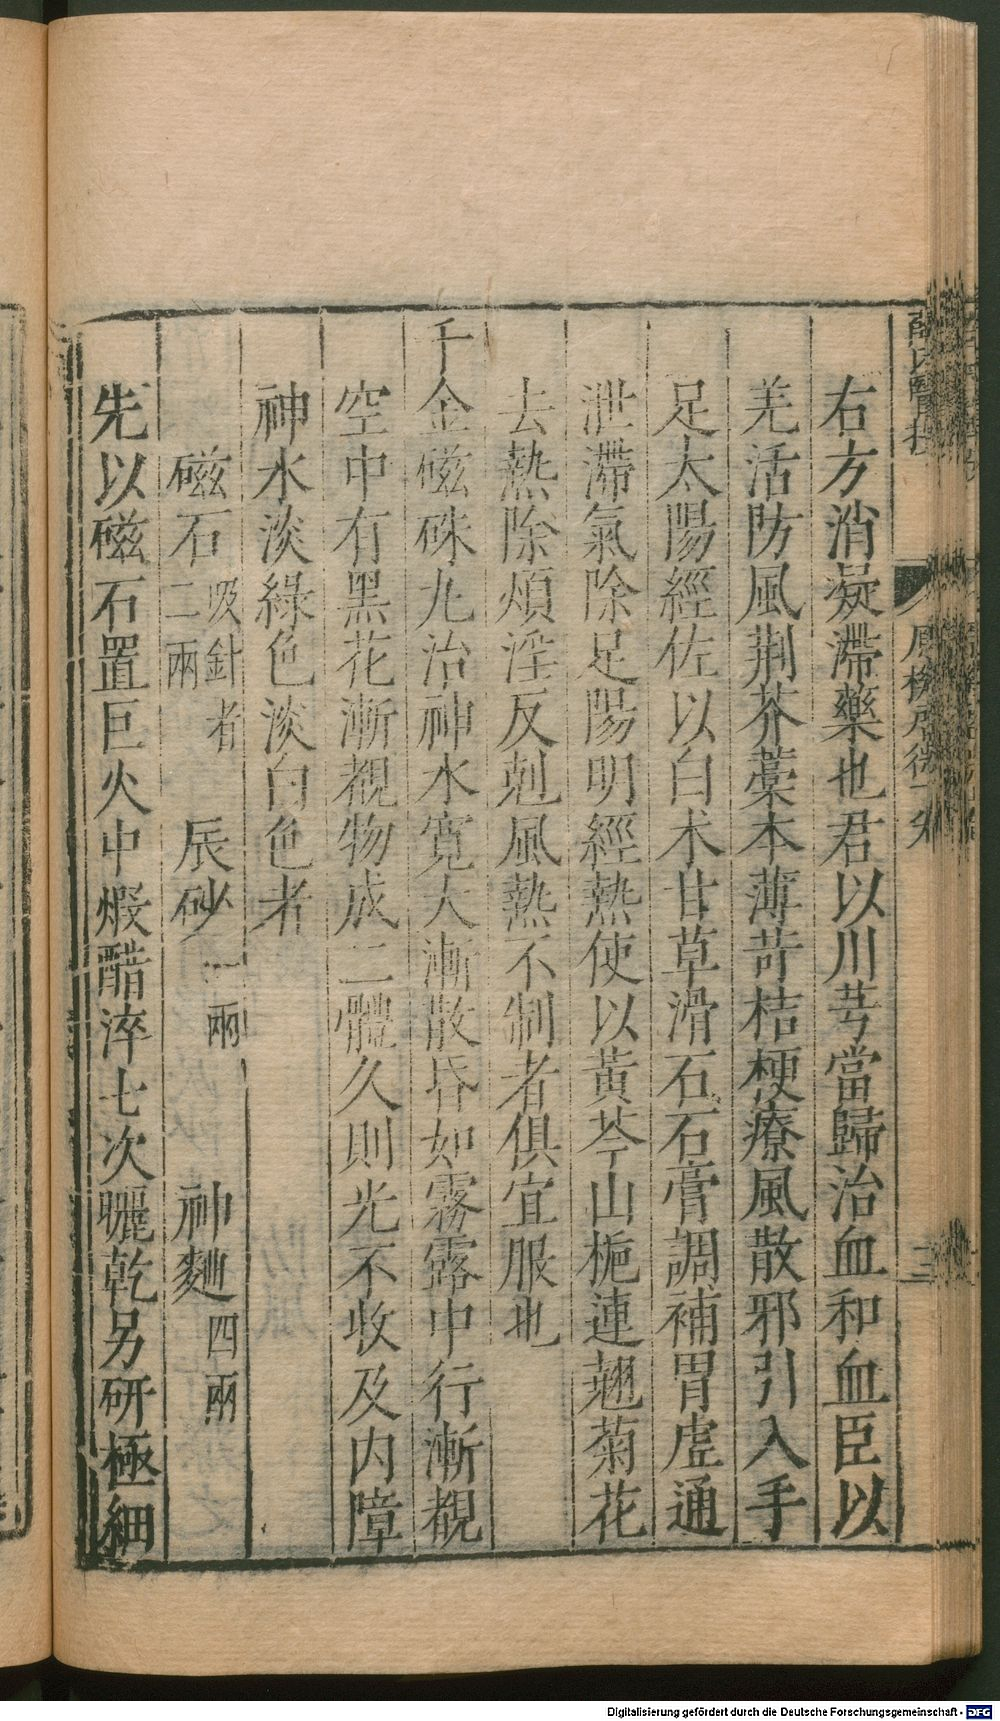 右方消凝滯藥也君以川芎當歸治血和血臣以
羌活防風荆芥藁本薄苛桔梗療風散邪引入手
足太陽經佐以白术甘草滑石石膏調補胃虛通
泄滯氣除足陽明經熱使以黃芩山梔連翹菊花
去熱除煩淫反剋風熱不制者俱宜服也
千金磁硃丸治神水寬大漸散昏如霧露中行漸覩
空中有黑花漸覩物成二體久則光不收及内障
神水淡綠色淡白色者
磁石吸針者二兩 辰砂一兩 神麯四兩
先以磁石置巨火中煆醋淬七次曬乾另研極細
薛氏醫按 原機啓微 二
Digitalisierung gefördert durch die Deutsche Forschungsgemeinschaft - DFG